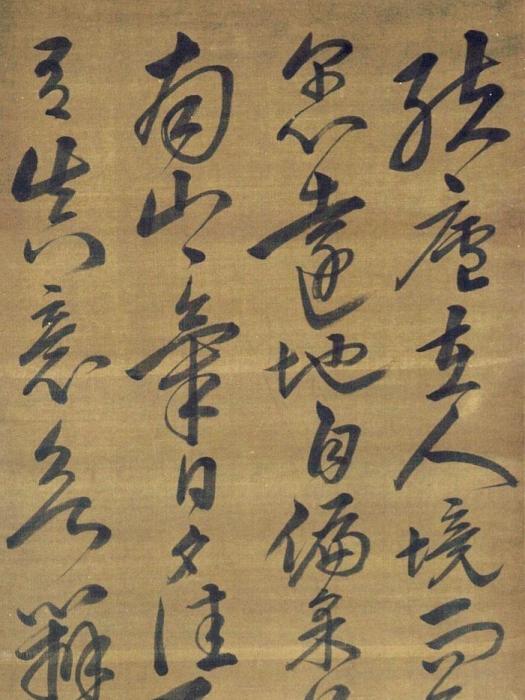 結廬在人境而
爾心遠地自偏采
南山々氣日夕佳
有真意欲辨